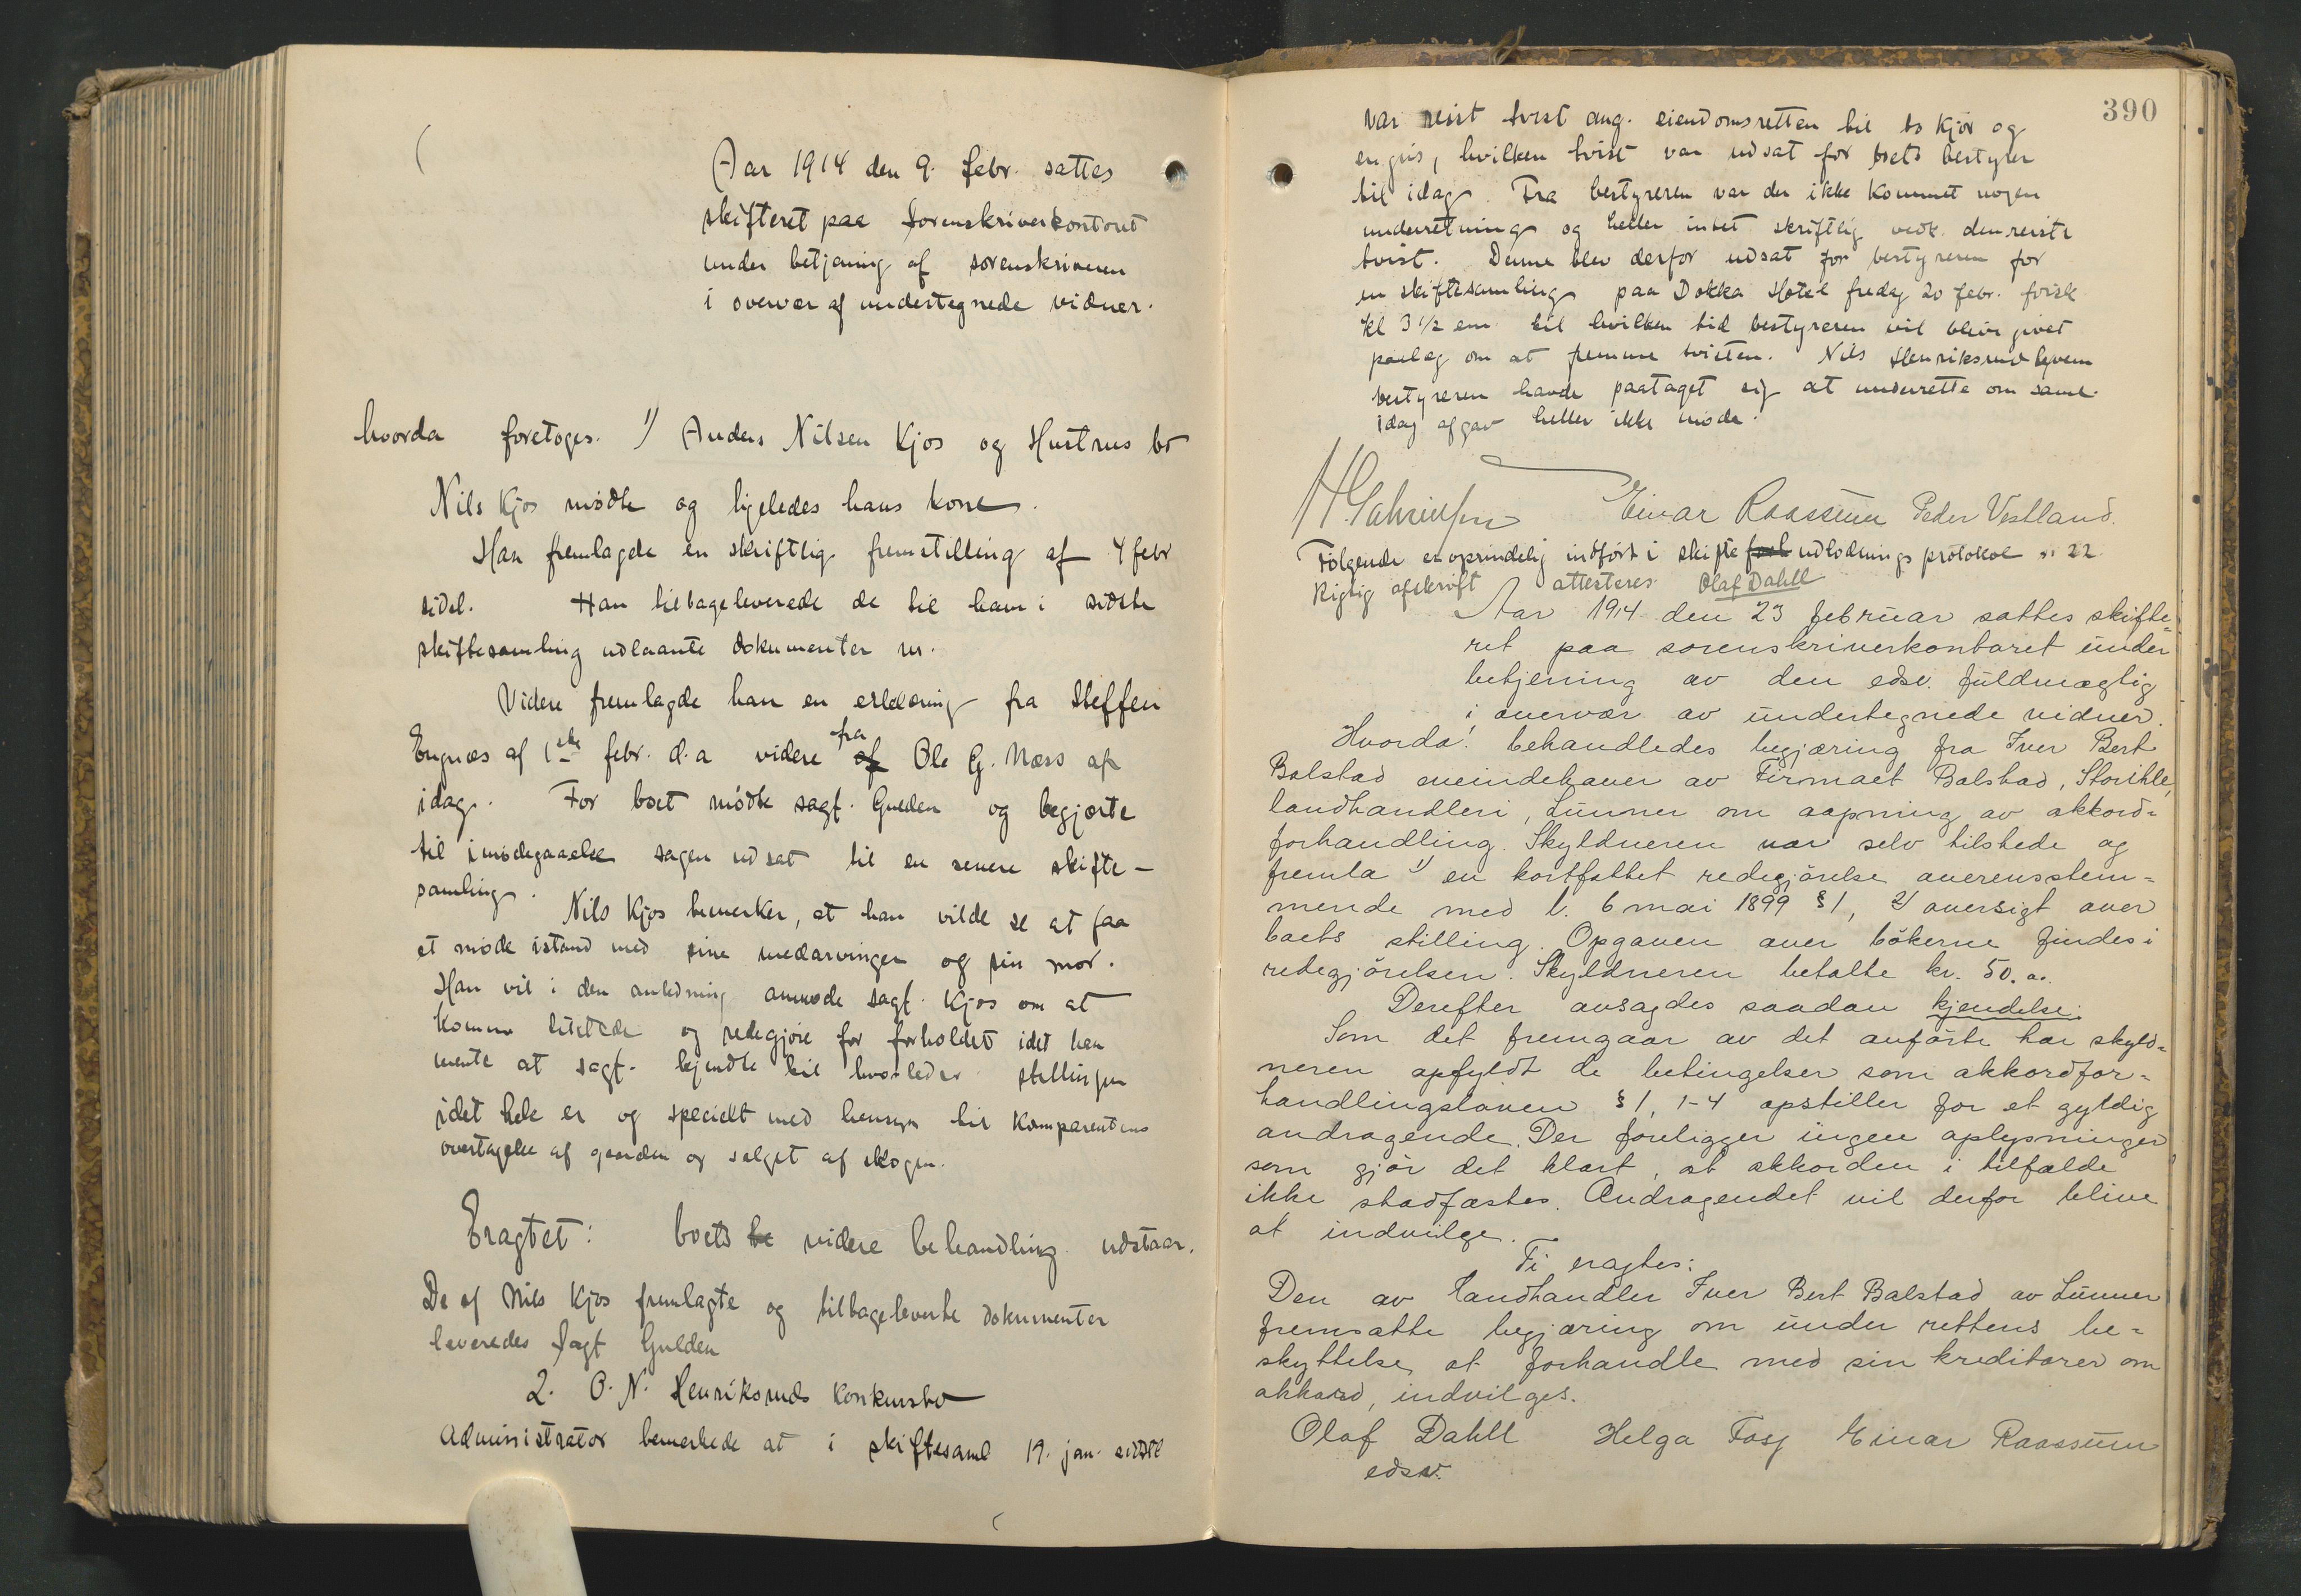 Aar 1914 den 9. febr. sattes
skifteret paa sorenskriverkontoret
under betjening af sorenskriveren
i overvær af undertegnede vidner.
hvorda foretoges. 1) Anders Nilsen Kjos og Hustrus bo
Nils Kjos mødte og ligeledes hans kone.
Han fremlagde en skriftlig fremstilling af 4 febr
sidstl. Han tilbageleverede de til ham i sidste
skiftesamling udlaante dokumenter
Videre fremlagde han en erklæring fra Steffen
Engnæs af 1ste febr. d.a videre fra Ole G. Næss af
idag. For boet mødte sagf. Gulden og begjærte
til imødegaaelse sagen udsat til en senere skifte-
samling. Nils Kjos bemerker, at han vilde se at faa
et møde istand med sine medarvinger og sin mor.
Han vil i den anledning anmode sagf. Kjos om at
komme tilstede og redegjøre for forholdet idet han
mente at sagf. kjendte til hvorledes stillingen
idet hele er og specielt med hensyn til komparentens
overtagelse af gaarden og salget af skogen.
Eragtet: boets be videre behandling udstaar.
De af Nils Kjos fremlagte og tilbageleverte dokumenter
leveredes sagf Gulden
2. O. N. Henriksruds konkursbo
Administrator bemerkede at i skiftesaml 19. jan. sidstl
390
var reist tvist ang. eiendomsretten til to kjør og
en gris, hvilken tvist var udsat for boets bestyrer
til idag. Fra bestyreren var der ikke kommet nogen
underretning og heller intet skriftlig vedk. den reiste
tvist. Denne blev derfor udsat for bestyreren for
en skiftesamling paa Dokka Hotel fredag 20 febr. førstk
kl 3 1/2 em til hvilken tid bestyreren vil blive givet
paalæg om at fremme tvisten. Nils Henriksrud hvem
bestyreren havde paataget sig at underrette om saml.
idag afgav heller ikke møde.
Einar Raassum Peder Vestland.
Følgende er oprindelig indført i skifte udlodnings protokol n. 22
Rigtig afskrift attesteres Olaf Dahll
Aar 1914 den 23 februar sattes skifte=
ret paa sorenskriverkontoret under
betjening av den edsv. fuldmægtig
i overvær av undertegnede vidner.
Hvorda! behandledes begjæring fra Iver Bert
Balstad eneindehaver av Firmaet Balstad,
landhandleri, Lunner om aapning av akkord=
forhandling. Skyldneren var selv tilstede og
fremla 1) en kortfattet redegjörelse overensstem=
mende med l. 6 mai 1899 § 1, 2) oversigt over
boets stilling. Opgaven over bökerne findes i
redegjörelsen. Skyldneren betalte kr. 50.00.
Derefter avsagdes saadan kjendelse:
Som det fremgaar av det anförte har skyld=
neren opfyldt de betingelser som akkordfor=
handlingsloven § 1, 1-4 opstiller for et gyldig
andragende. Der foreligger ingen oplysninger
som gjör det klart, at akkorden i tilfælde
ikke stadfæstes. Andragendet vil derfor blive
at indvilge.
Ti eragtes:
Den av landhandler Iver Bert Balstad av Lunner
fremsatte begjæring om under rettens be=
skyttelse at forhandle med sin kreditorer om
akkord, indvilges.
Olaf Dahll Helga Fosz Einar Raassum
edsv.